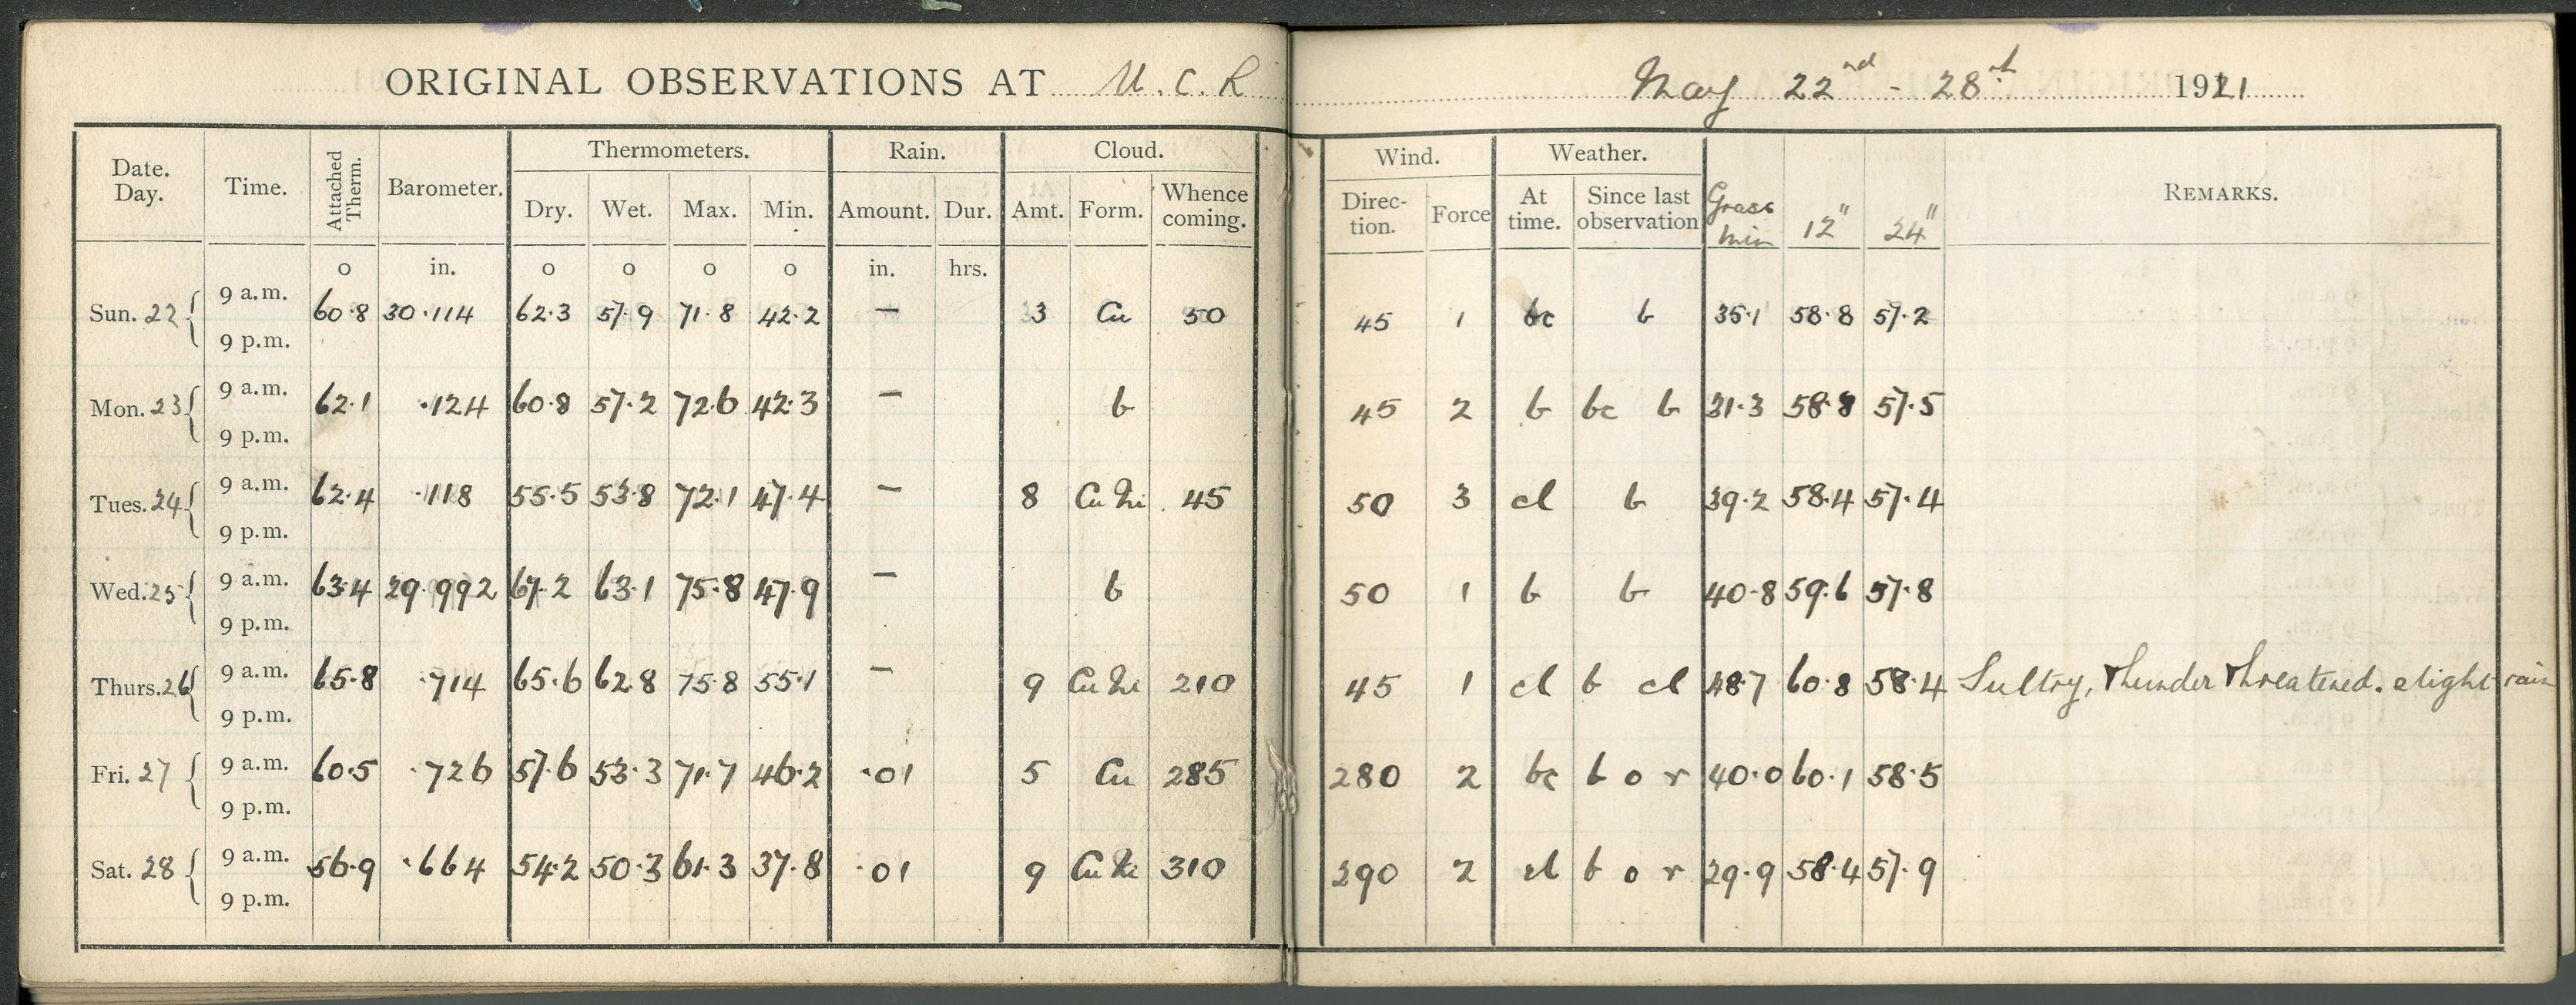 ORIGINAL OBSERVATIONS AT U.C.R May 22nd - 28th 1921
Date. Day. Time. Attached Therm. Barometer. Thermometers. Rain. Cloud. Wind. Weather. Grass min 12" 24" REMARKS.
Dry. Wet. Max. Min. Amount. Dur. Amt. Form. Whence coming. Direc- tion. Force At time. Since last observation
o in. o o o o in. hrs.
Sun. 22 9 a.m. 60.8 30.114 62.3 57.9 71.8 42.2 — 3 Cu 50 45 1 bc b 35.1 58.8 57.2
9 p.m.
Mon. 23 9 a.m. 62.1 .124 60.8 57.2 72.6 42.3 — b 45 2 b bc b 31.3 58.8 57.5
9 p.m.
Tues. 24 9 a.m. 62.4 .118 55.5 53.8 72.1 47.4 — 8 Cu Ni 45 50 3 cl b 39.2 58.4 57.4
9 p.m.
Wed. 25 9 a.m. 63.4 29.992 67.2 63.1 75.8 47.9 — b 50 1 b b 40.8 59.6 57.8
9 p.m.
Thurs. 26 9 a.m. 65.8 .714 65.6 62.8 75.8 55.1 — 9 Cu Ni 210 45 1 cl b cl 48.7 60.8 58.4 Sultry, Thunder Threatened. slight rain
9 p.m.
Fri. 27 9 a.m. 60.5 .726 57.6 53.3 71.7 46.2 .01 5 Cu 285 280 2 bc b o r 40.0 60.1 58.5
9 p.m.
Sat. 28 9 a.m. 56.9 .664 54.2 50.3 61.3 37.8 .01 9 Cu Ni 310 290 2 cl b o r 29.9 58.4 57.9
9 p.m.